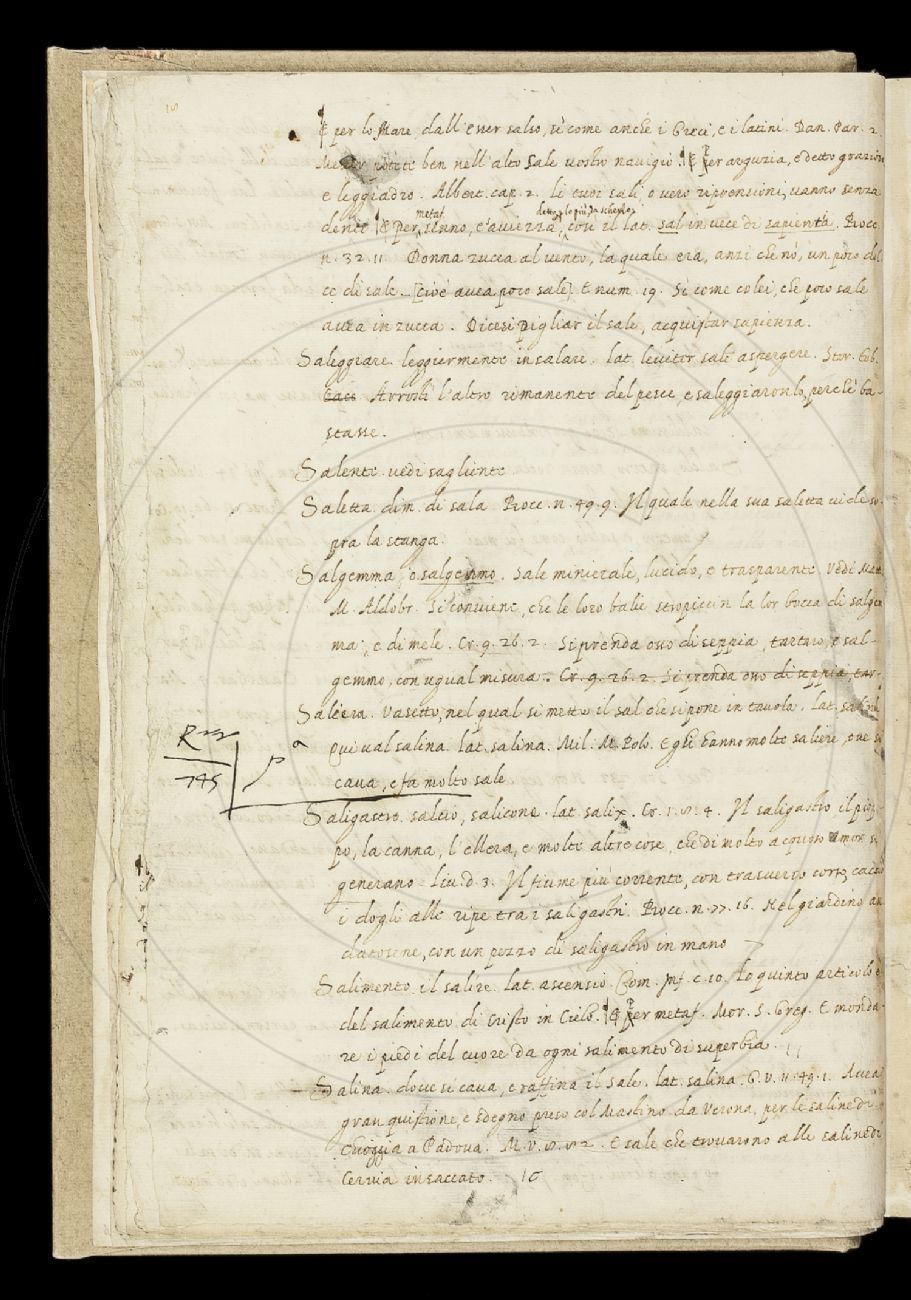 E per lo Mare, dall'esser salso, sì come anche i Greci, e i latini. Dan. Par. 2.
Metter potete ben nell'alto Sale vostro navigio. E per arguzia, e detto grazioso
e leggiadro. Albert. cap. 2. li tuoi sali, o vero riprensioni, vanno senza
dente E per metaf. senno, e saviezza, detto lo più da scherzo, così il lat. sal in vece di sapientia. Bocc.
n. 32. 11. Donna zucca al vento, la quale era, anzi che nò, un poco dol
ce di sale. [cioè avea poco sale]. E num. 19. Si come colei, che poco sale
avea in zucca. Dicesi Pigliar il sale, acquistar sapienza.
Saleggiare. leggiermente insalare. lat. leviter sale aspergere. Stor. Tob.
Arrostì l'altro rimanente del pesce, e saleggiaronlo, perchè ba-
stasse.
Salente. vedi sagliente
Saletta. dim. di sala. Bocc. n. 49. 9. Il quale nella sua saletta vide so-
pra la stanga.
Salgemma, e salgemmo. Sale minerale, lucido, e trasparente. Vedi Matt.
M. Aldobr. Si conviene, che le loro balie stropiccin la lor bocca di salgem
ma, e di mele. Cr. 9. 26. 2. Si prenda osso di seppia, tartaro, e sal-
gemmo, con ugual misura. Cr. 9. 26. 2. Si prenda osso di seppia, tar-
Saliera. Vasetto, nel qual si mette il sal che si pone in tavola. lat. salinum
Qui val salina. lat. salina. Mil. M. Polo. E gli hanno molte saliere, ove si
cava, e fa molto sale.
745
Saligastro. salcio, salicone. lat. salix. Cr. 1. 4. Il saligastro, il piop-
po, la canna, l'ellera, e molte altre cose, che di molto acquoso umore si
generano. Liv. d. 3. Il fiume più corrente, con trasverso corso, cacciò
i dogli alle ripe tra i saligastri. Bocc. n. 77. 16. Nel giardino an
datosene, con un pezzo di saligastro in mano
Salimento. il salire. lat. ascensio. Com. Inf. c. 10. Lo quinto articolo è
del salimento di Cristo in Cielo. E per metaf. Mor. S. Greg. E monda-
re i piedi del cuore da ogni salimento di superbia.
Salina. dove si cava, e raffina il sale. lat. salina. G. V. 11. 49. 1. Avea
gran quistione, e sdegno preso col Mastino da Verona, per le saline di
Chioggia a Padova. M. V. E sale che trovarono alle saline di
Cervia insaccato.